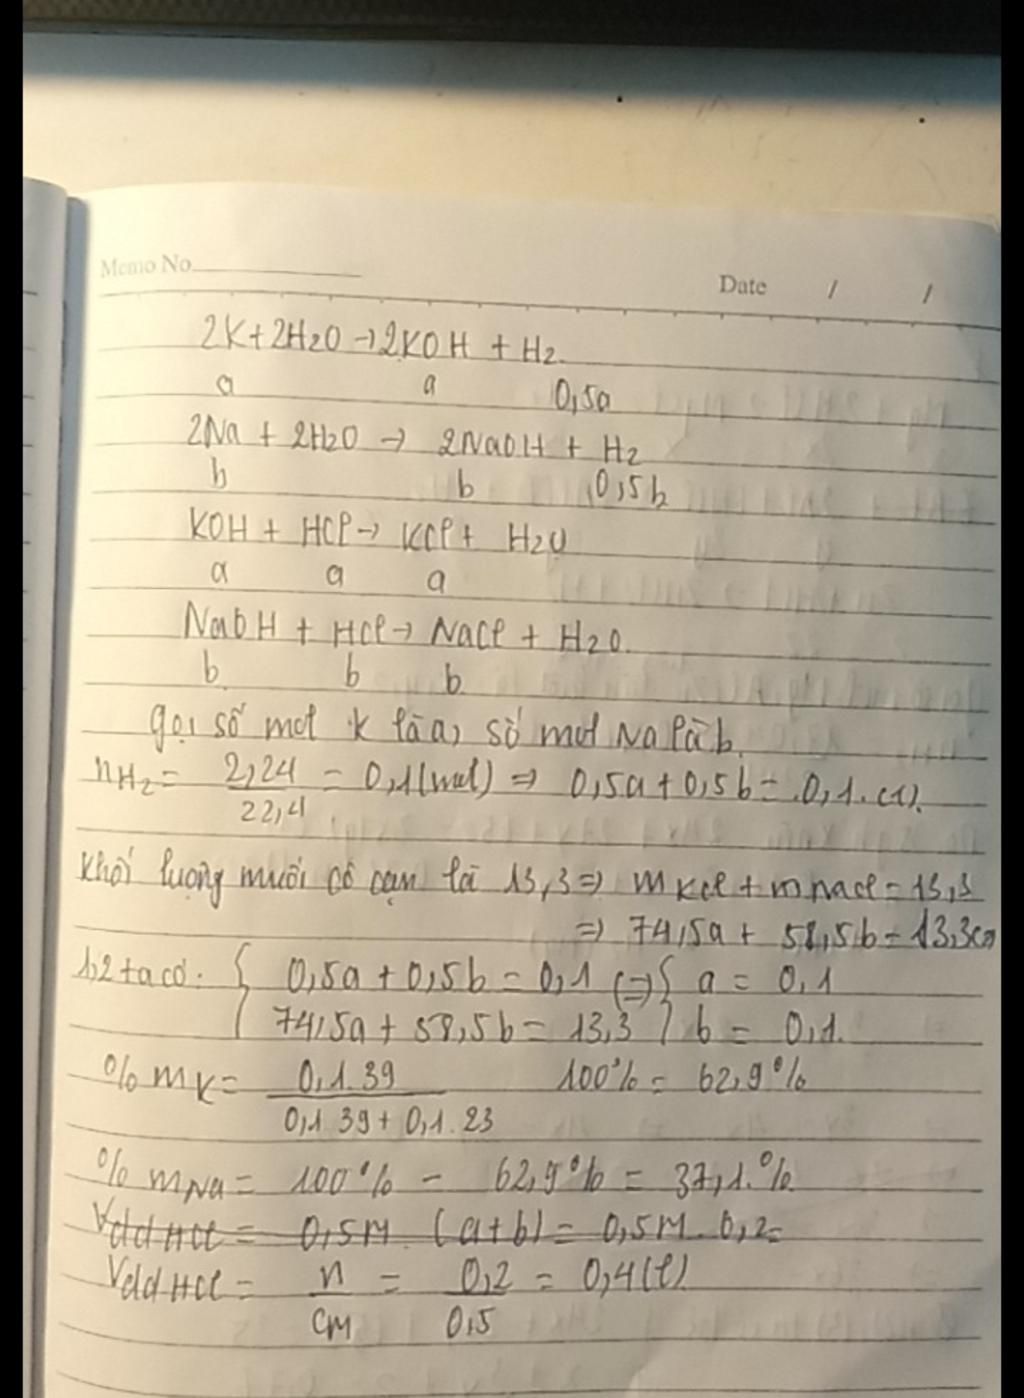 Memo No.
Date / /
2K + 2H2O → 2KOH + H2
a a 0,5a
2Na + 2H2O → 2NaOH + H2
b b 0,5b
KOH + HCl → KCl + H2O
a a a
NaOH + HCl → NaCl + H2O.
b b b
gọi số mol K là a, số mol Na là b.
nH2 = 2,24/22,4 = 0,1(mol) ⇒ 0,5a + 0,5b = 0,1. (1).
khối lượng muối cô cạn là 13,3 ⇒ mKCl + mNaCl = 13,3
⇒ 74,5a + 58,5b = 13,3(2)
1,2 ta có: { 0,5a + 0,5b = 0,1 (⇒) { a = 0,1
74,5a + 58,5b = 13,3 b = 0,1.
% mK = 0,1.39 / 0,1.39 + 0,1.23 100% = 62,9%
% mNa = 100% - 62,9% = 37,1.%
Vdd HCl = 0,5M. (a+b) = 0,5M. 0,2=
Vdd HCl = n/CM = 0,2/0,5 = 0,4(l)